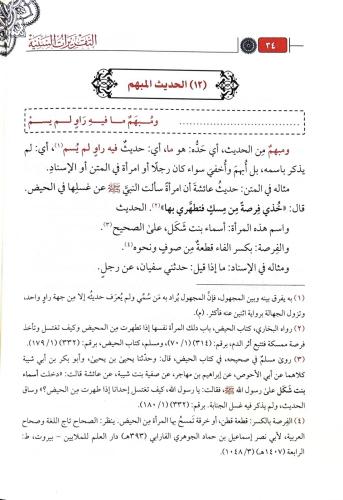 التقريرات السنية
٣٤
(١٢) الحديث المبهم
ومُبهَمٌ ما فيهِ رَاوٍ لم يُسَمْ
ومبهمٌ مِن الحديث، أي حَدُّه: هو ما، أي: حديثٌ فيه راوٍ لم يُسَم(١)، أي: لم
يذكر باسمه، بل أُبهم وأُخفي سواء كان رجلًا أو امرأة في المتن أو الإسناد.
مثاله في المتن: حديثُ عائشةَ أن امرأةً سألت النبيَّ ﷺ عن غسلِها في الحيض.
قال: «خُذي فِرصةً مِن مِسكٍ فتطهَّري بها»(٢). الحديث
واسم هذه المرأة: أسماء بنت شَكَل، على الصحيح(٣).
والفِرصة: بكسر الفاء قطعةٌ مِن صوفٍ ونحوه(٤).
ومثاله في الإسناد: ما إذا قيل: حدثني سفيان، عن رجلٍ.
(١) به يفرق بينه وبين المجهول، فإنَّ المجهول يُراد به مَن سُمِّي ولم يُعرَف حديثُه إلا مِن جهة راوٍ واحد،
وتزول الجهالة برواية اثنين عنه فأكثر. (م).
(٢) رواه البخاري، كتاب الحيض، باب دلك المرأة نفسها إذا تطهرت من المحيض وكيف تغتسل وتأخذ
فرصة ممسكة فتتبع أثر الدم، برقم: (٣١٤) (١/ ٧٠)، ومسلم، كتاب الحيض، برقم: (٣٣٢) (١/ ١٧٩).
(٣) روى مسلمٌ في صحيحه، في كتاب الحيض، قال: وحدَّثنا يحيى بن يحيى، وأبو بكر بن أبي شيبة
كلاهما عن أبي الأحوص، عن إبراهيم بن مهاجر، عن صفية بنت شيبة، عن عائشة قالت: «دخلت أسماء
بنت شَكَل على رسول الله ﷺ، فقالت: يا رسول الله، كيف تغتسل إحدانا إذا طهرت مِن الحيض؟» وساق
الحديث، ولم يذكر فيه غسل الجنابة. برقم: (٣٣٢) (١/ ١٨٠).
(٤) الفِرصة بالكسر: قطعة قطن، أو خرقة تَمسحُ بها المرأة مِن الحيض. ينظر: الصحاح تاج اللغة وصحاح
العربية، لأبي نصر إسماعيل بن حماد الجوهري الفارابي (٣٩٣هـ) دار العلم للملايين – بيروت، ط:
الرابعة (١٤٠٧هـ) (٣/ ١٠٤٨).